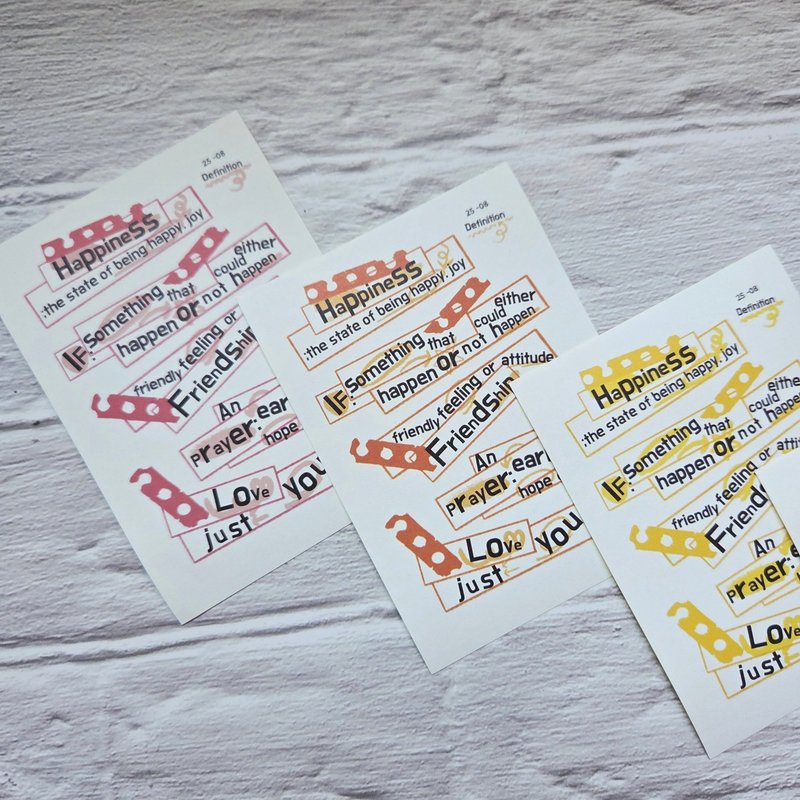 25-08
Definition
Happiness
:the state of being happy.joy
IF:Something that could either
happen or not happen
friendly feeling or
Friendship
An
Prayer:ear
hope
Love
just you
25-08
Definition
Happiness
:the state of being happy.joy
IF:Something that could either
happen or not happen
friendly feeling or attitude
Friendship
An
Prayer:earn
hope
Love
just you
25-08
Definition
Happiness
:the state of being happy.joy
IF:Something that could either
happen or not happen
friendly feeling or attit
Friends
An
Prayer:e
Love
just